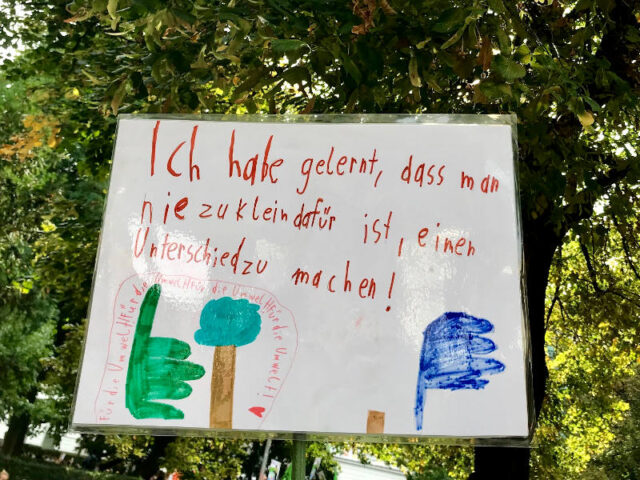 Ich habe gelernt, dass man
nie zu klein dafür ist, einen
Unterschied zu machen!
Für die Umwelt! Für die Umwelt! Für die Umwelt! Für die Umwelt! Für die Umwelt!